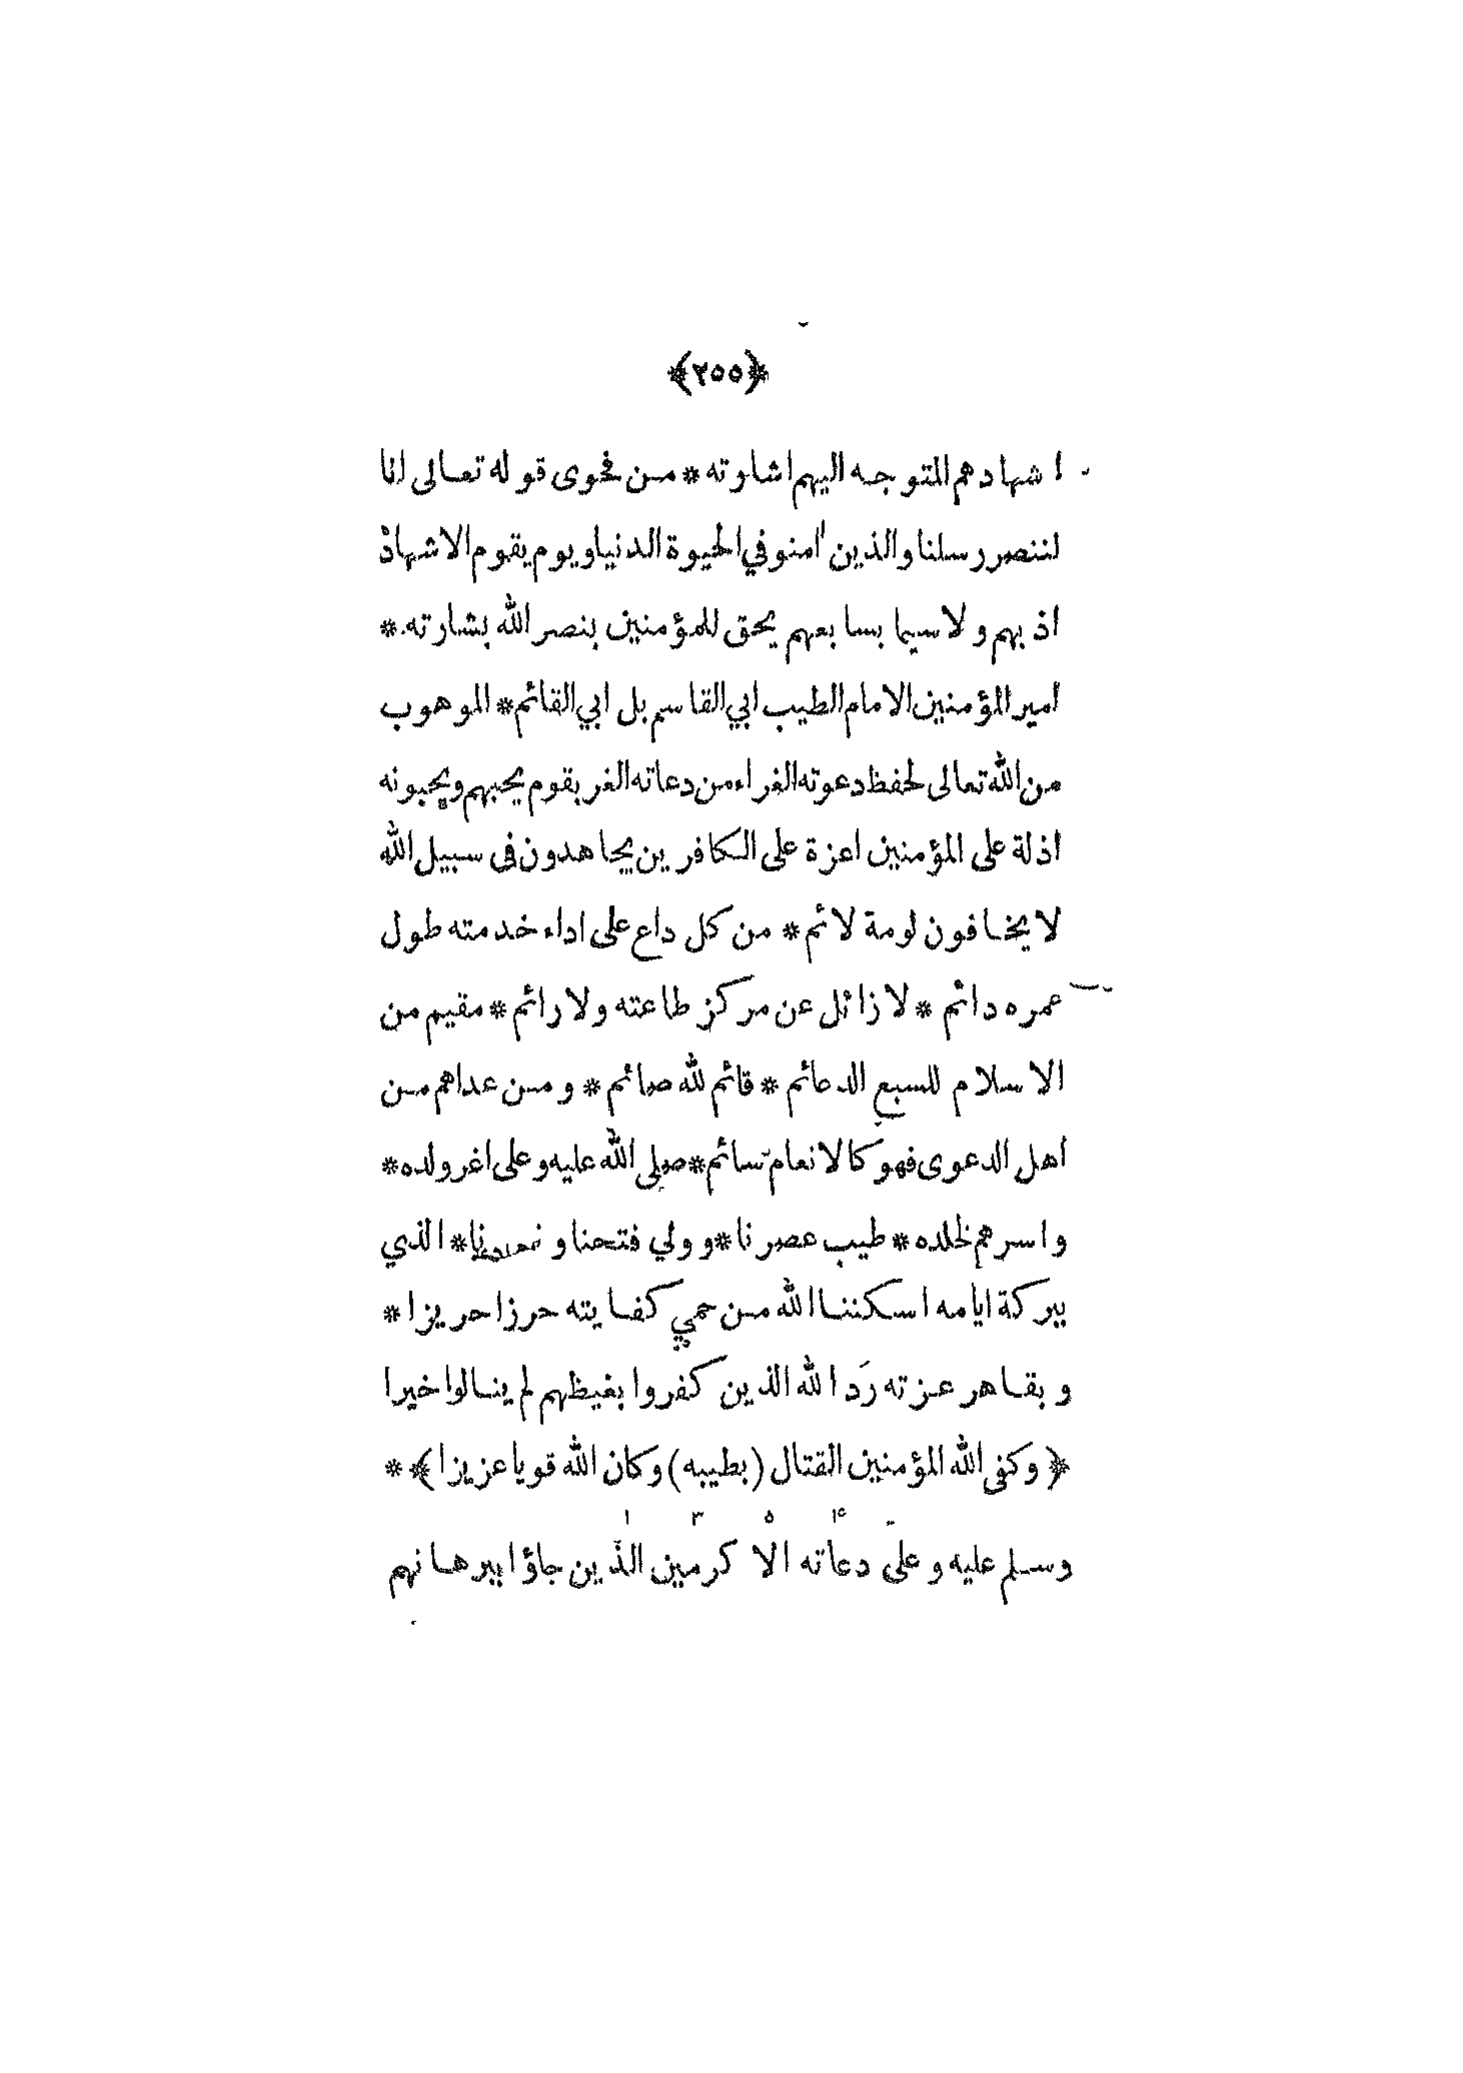 ﴿٢٥٥﴾
اشهادهم المتوجه اليهم اشارته * من فحوى قوله تعالى انا
لننصر رسلنا والذين اٰمنو في الحيوة الدنيا ويوم يقوم الاشهاد *
اذ بهم ولا سيما بسابعهم يحق للمؤمنين بنصر الله بشارته *
امير المؤمنين الامام الطيب ابي القاسم بل ابي القائم * الموهوب
من الله تعالى لحفظ دعوته الغراء من دعاته الغر بقوم يحبهم ويحبونه
اذلة على المؤمنين اعزة على الكافرين يجاهدون فى سبيل الله
لا يخافون لومة لائم * من كل داع على اداء خدمته طول
عمره دائم * لا زائل عن مركز طاعته ولا رائم * مقيم من
الاسلام للسبع الدعائم * قائم لله صائم * ومن عداهم من
اهل الدعوى فهو كالانعام سائم * صلى الله عليه وعلى اغر ولده *
واسرهم لخلده * طيب عصرنا * وولي فتحنا و * الذي
ببركة ايامه اسكننا الله من حمي كفايته حرزا حريزا *
وبقاهر عزته رَد الله الذين كفروا بغيظهم لم ينالوا خيرا
﴿وكفى الله المؤمنين القتال (بطيبه) وكان الله قويا عزيزا﴾ *
وسلم عليه وعلى دعاته الاكرمين الذين جاؤا ببرهانهم